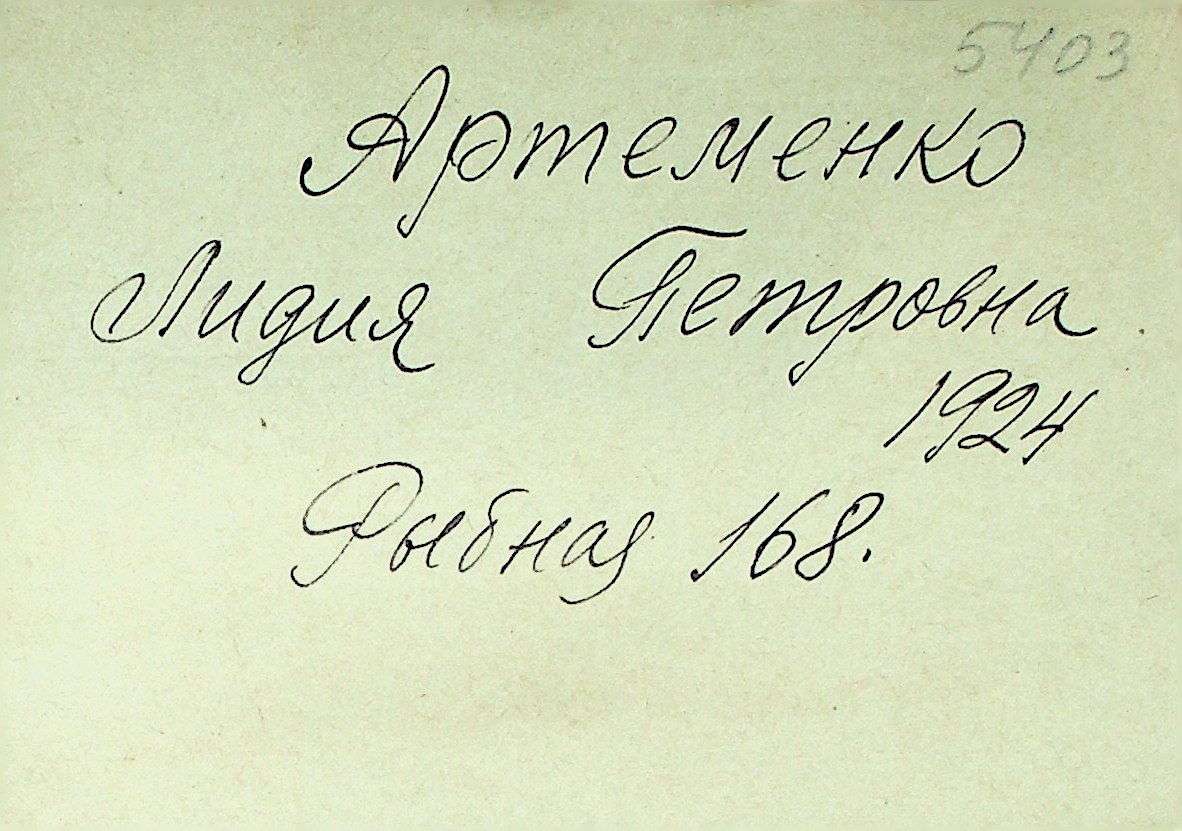 5403
Артеменко
Лидия Петровна
1924
Рыбная 168.